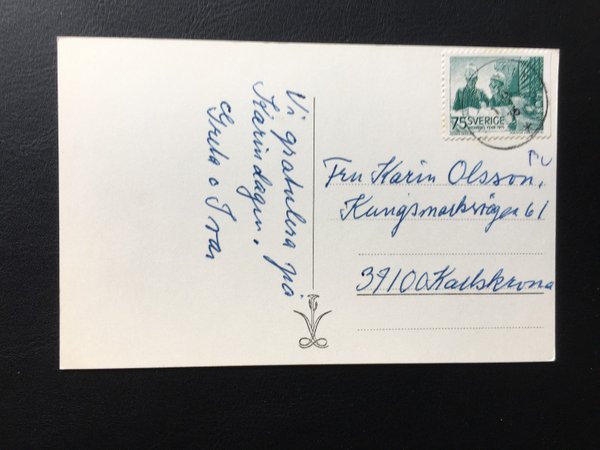 Vi gratulera på
Karindagen.
Greta o Ivar
75 SVERIGE
Fru Karin Olsson,
Kungsmarksvägen 61
37100 Karlskrona